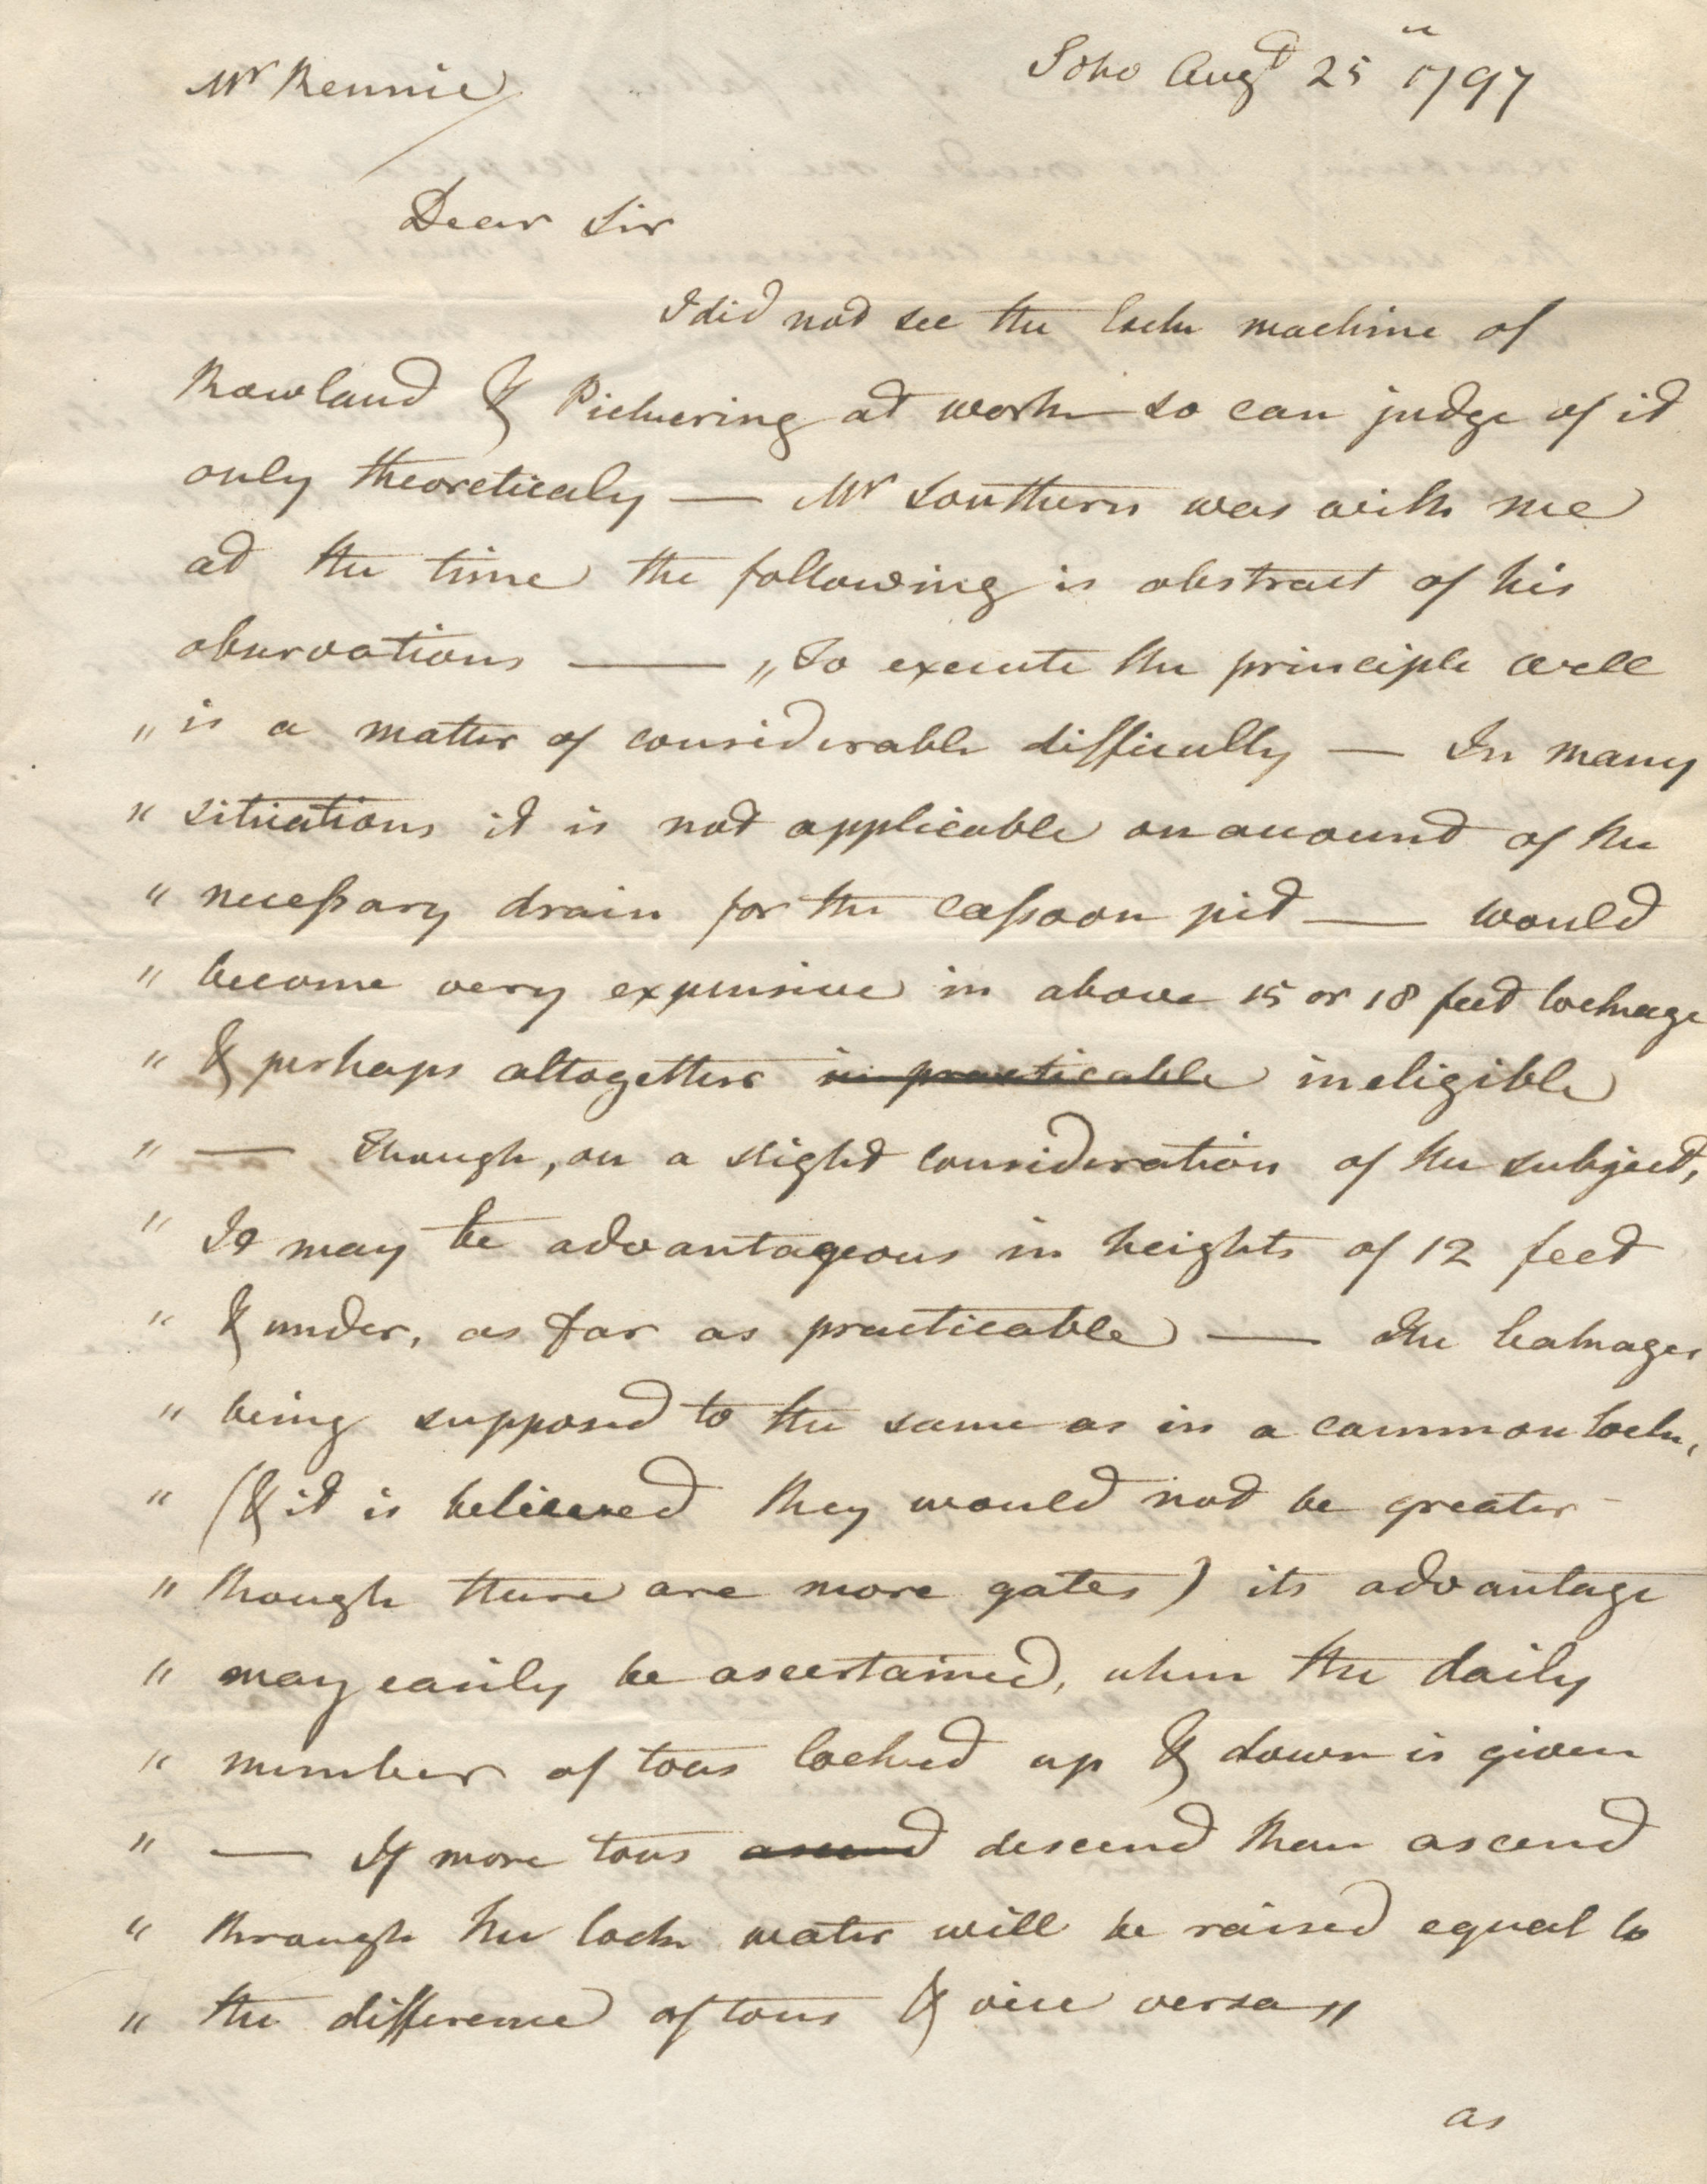 Mr Rennie
Soho Augt 25 " 1797
Dear Sir
I did not see the Lock machine of
Rowland & Pickering at work so can judge of it
only theoreticaly — Mr Southern was with me
at the time the following is abstract of his
observations — „ To execute the principle well
„ is a matter of considerable difficulty — In many
" situations it is not applicable on account of the
" necessary drain for the cassoon pit — would
" become very expensive in above 15 or 18 feet lockage
" & perhaps altogether impracticable ineligible
" — though, on a slight consideration of the subject,
" It may be advantageous in heights of 12 feet
" & under, as far as practicable — The leakages
" being supposed to the same as in a common lock,
" (& it is believed they would not be greater
" though there are more gates) its advantage
" may easily be ascertained, when the daily
" number of tons locked up & down is given
" — If more tons ascend descend than ascend
" through the lock water will be raised equal to
" the difference of tons & vice versa „
as